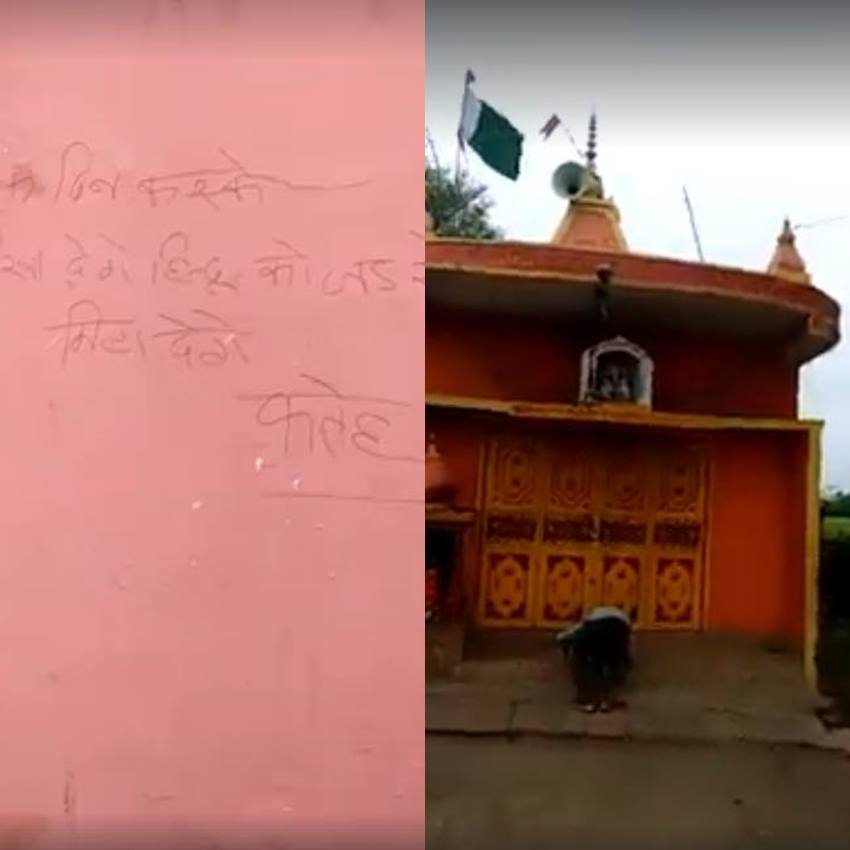 दिन करके
देंगे हिन्दू को जड़ से
मिटा देंगे
फतेह